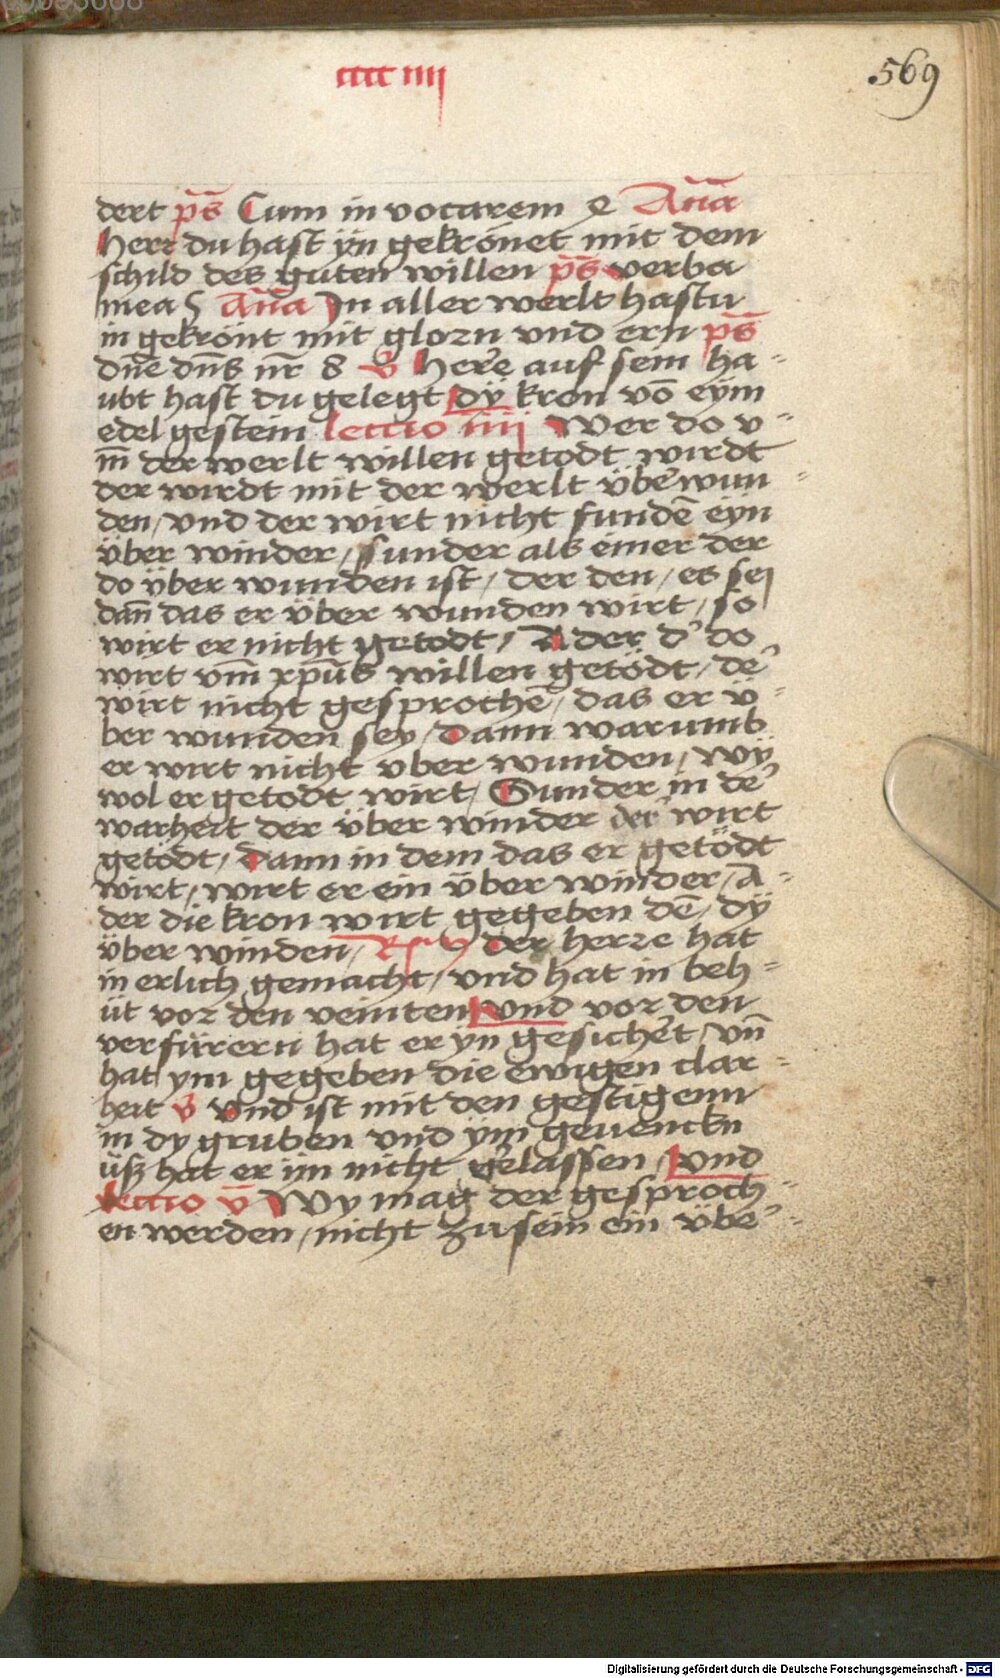 cccc iiij
569
dert ps̄ Cum in vocarem e Año
herr du hast ÿn gekrönet mit dem
schild des guten willen ps̄ verba
mea 5 Año In aller werlt hastu
in gekrönt mit glorn vnd ern ps̄
dn̄e dn̄s nr̄ 8 v herre auf sem ha-
ubt hast du gelegt dÿ kron vō eÿm
edel gestein lectio iiij Wer do v-
m̄ der werlt willen getodt wirdt
der wirdt mit der werlt über wun-
den/ vnd der wirt nicht fundē eyn
über winder/ sunder als einer der
do über wunden ist/ der den/ es sej
dan̄ das er über wunden wirt/ so
wirt er nicht getodt/ Ader d' do
wirt vm̄ xp̄us willen getödt/ de'
wirt nicht gesprochē/ das er ü-
ber wunden sey/ dann warumb
er wirt nicht vber wunden/ wÿ
wol er getodt wirt/ Sunder in de'
warheit der über winder der wirt
getödt/ dann in dem das er getödt
wirt/ wirt er ein über winder/ A-
der die kron wirt gegeben dē/ dÿ
über winden/ der herre hat
in erlich gemacht/ vnd hat in beh-
üt vor den veinten vnd vor den
verfürern hat er yn gesichert/ vn̄
hat ym gegeben die ewigen clar-
heit v vnd ist mit den gestigenn
in dy gruben vnd ym gevenckn
üsz hat er im nicht gelassen/ vnd
lectio v̄ Wy mag der gesproch-
en werden/ nicht zu sein ein übe'-
Digitalisierung gefördert durch die Deutsche Forschungsgemeinschaft - DFG